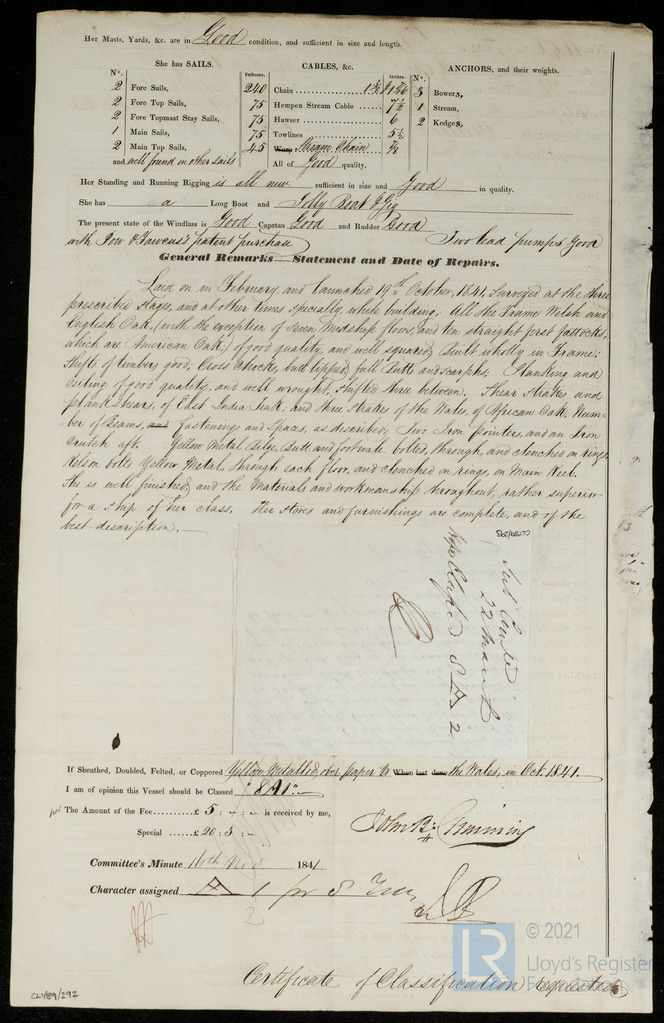 Her Masts, Yards, &c. are in Good condition, and sufficient in size and length.
She has SAILS.
Nº.
2 Fore Sails,
2 Fore Top Sails,
2 Fore Topmast Stay Sails,
1 Main Sails,
2 Main Top Sails,
and well found in other sails
CABLES, &c.
Fathoms. Inches.
240 Chain
75 Hempen Stream Cable 7½
75 Hawser 6
75 Towlines 5½
45 Warp Stream Chain 7/8
All of Good quality.
ANCHORS, and their weights.
Nº.
3 Bowers,
1 Stream,
2 Kedges,
Her Standing and Running Rigging is all new sufficient in size and Good in quality.
She has a Long Boat and Jolly Boat & Gig
The present state of the Windlass is Good Capstan Good and Rudder Good
with patent purchase Two lead pumps Good
General Remarks Statement and Date of Repairs.
Laid on in February and launched 19th October, 1841, Surveyed at the three
prescribed stages, and at other times specially, while building. All the Frame Welsh and
English Oak, (with the exception of Seven Midship floors and ten straight first futtocks,
which are American Oak,) of good quality, and well squared, Built wholly in Frame;
shifts of timbers good; Cross Chocks, butt lipped, full Butts and scarphs. Planking and
Ceiling of good quality, and well wrought, shifted three between. Shear Strakes and
plankshears, of East India Teak, and three Strakes of the Wales, of African Oak. Num-
ber of Beams, and fastenings and spaces, as described; Two Iron pointers, and an Iron
Crutch aft. Yellow Metal Bilge, Butt and bolted, through, and clenched on rings
Kelson bolts Yellow Metal, through each floor, and clenched on rings, on Main Keel.
She is well finished, and the Materials and workmanship throughout, rather superior
for a ship of her class. Her stores and furnishings are complete, and of the
best description.
If Sheathed, Doubled, Felted, or Coppered Yellow Metalled, over paper to When last done the Wales, in Oct. 1841.
I am of opinion this Vessel should be Classed "8 A1"
The Amount of the Fee ...... £ 5 : - : - is received by me,
Special ...... £ 20 : 3 : -
Committee's Minute 16th Nov 1841
Character assigned A 1 for 8 Years
2
Certificate of Classification requested
CLY89/292
© 2021
LR
Lloyd's Register
Foundation